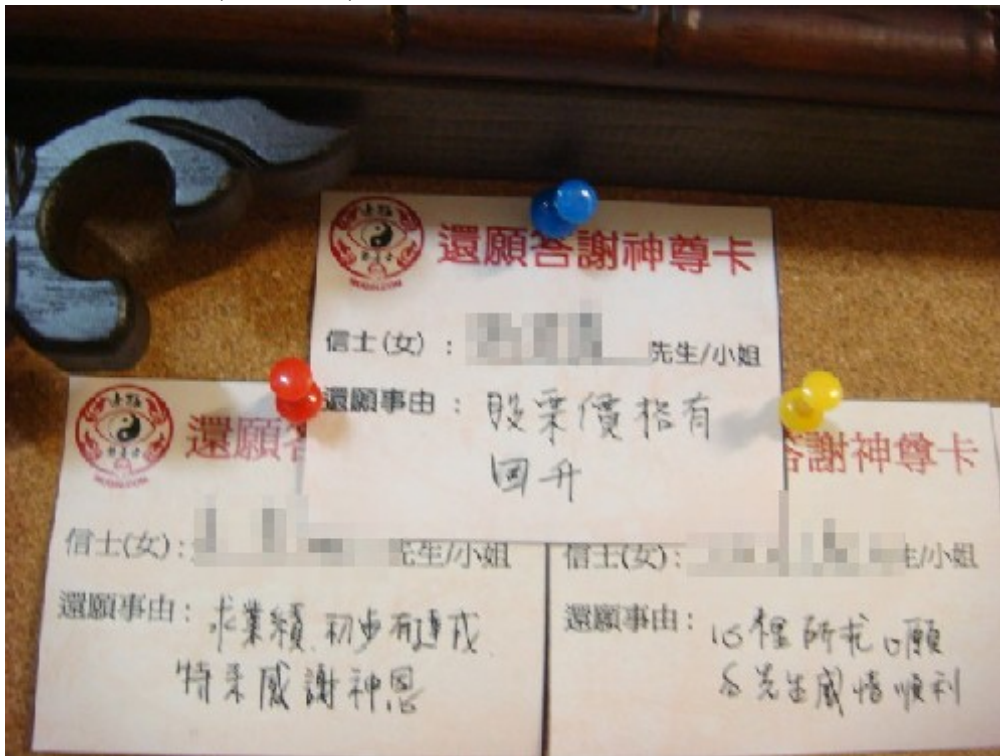 還願答謝神尊卡
信士(女) : 先生/小姐
還願事由 : 股票價格有
回升
還願
信士(女) : 先生/小姐
還願事由 : 求業績,初步有達成
特來感謝神恩
答謝神尊卡
信士(女) : 生/小姐
還願事由 : 心裡所求心願
先生感情順利